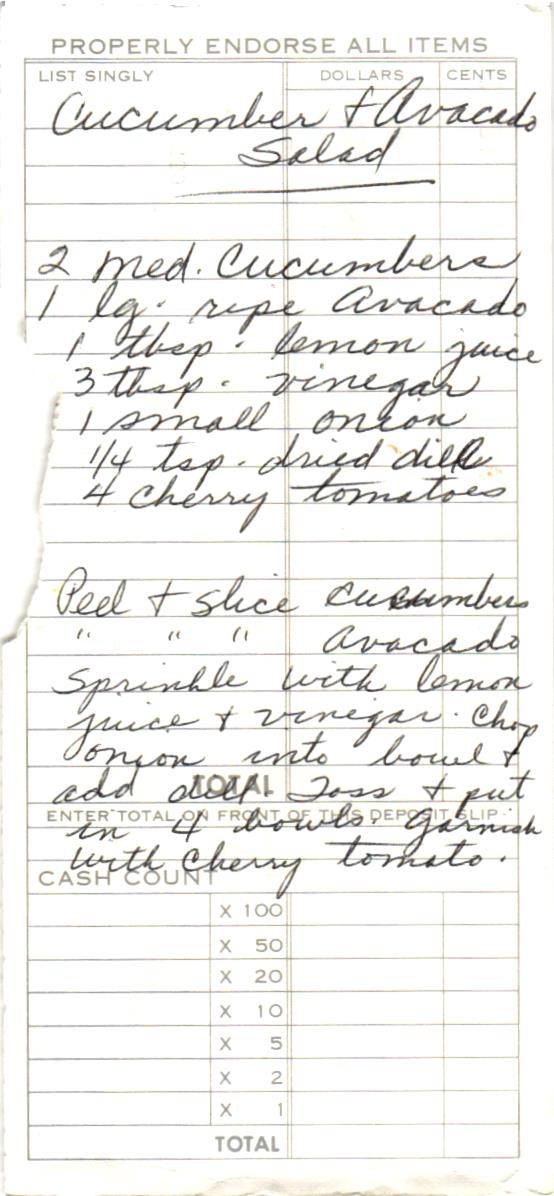 PROPERLY ENDORSE ALL ITEMS
LIST SINGLY DOLLARS CENTS
Cucumber + Avacado
Salad
2 med. Cucumbers
1 lg. ripe Avacado
1 tbsp. lemon juice
3 tbsp. vinegar
1 small onion
1/4 tsp. dried dill
4 cherry tomatoes
Peel + slice cucumbers
" " " avacado
Sprinkle with lemon
juice + vinegar. Chop
onion into bowl +
add dill Toss + put
TOTAL
ENTER TOTAL ON FRONT OF THIS DEPOSIT SLIP
in 4 bowls. Garnish
with cherry tomato.
CASH COUNT
X 100
X 50
X 20
X 10
X 5
X 2
X 1
TOTAL